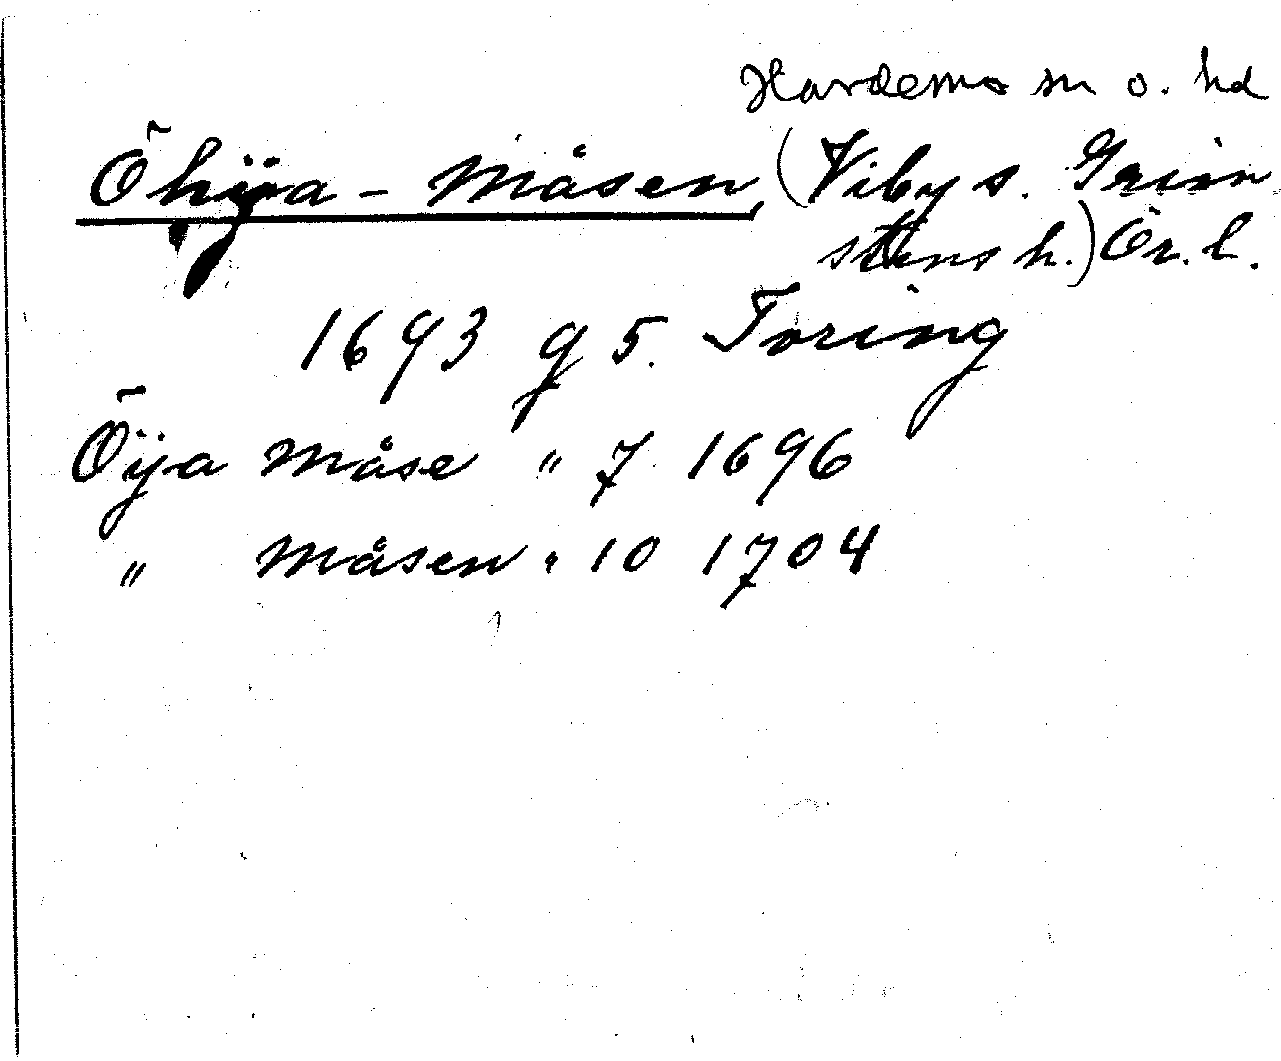 Hardemo sn o. hd
Öhÿa - Måsen, (Viby s. Grim
stens h.) Ör. l.
1693 g 5. Toring
Öÿa Måse " 7 1696
" Måsen " 10 1704